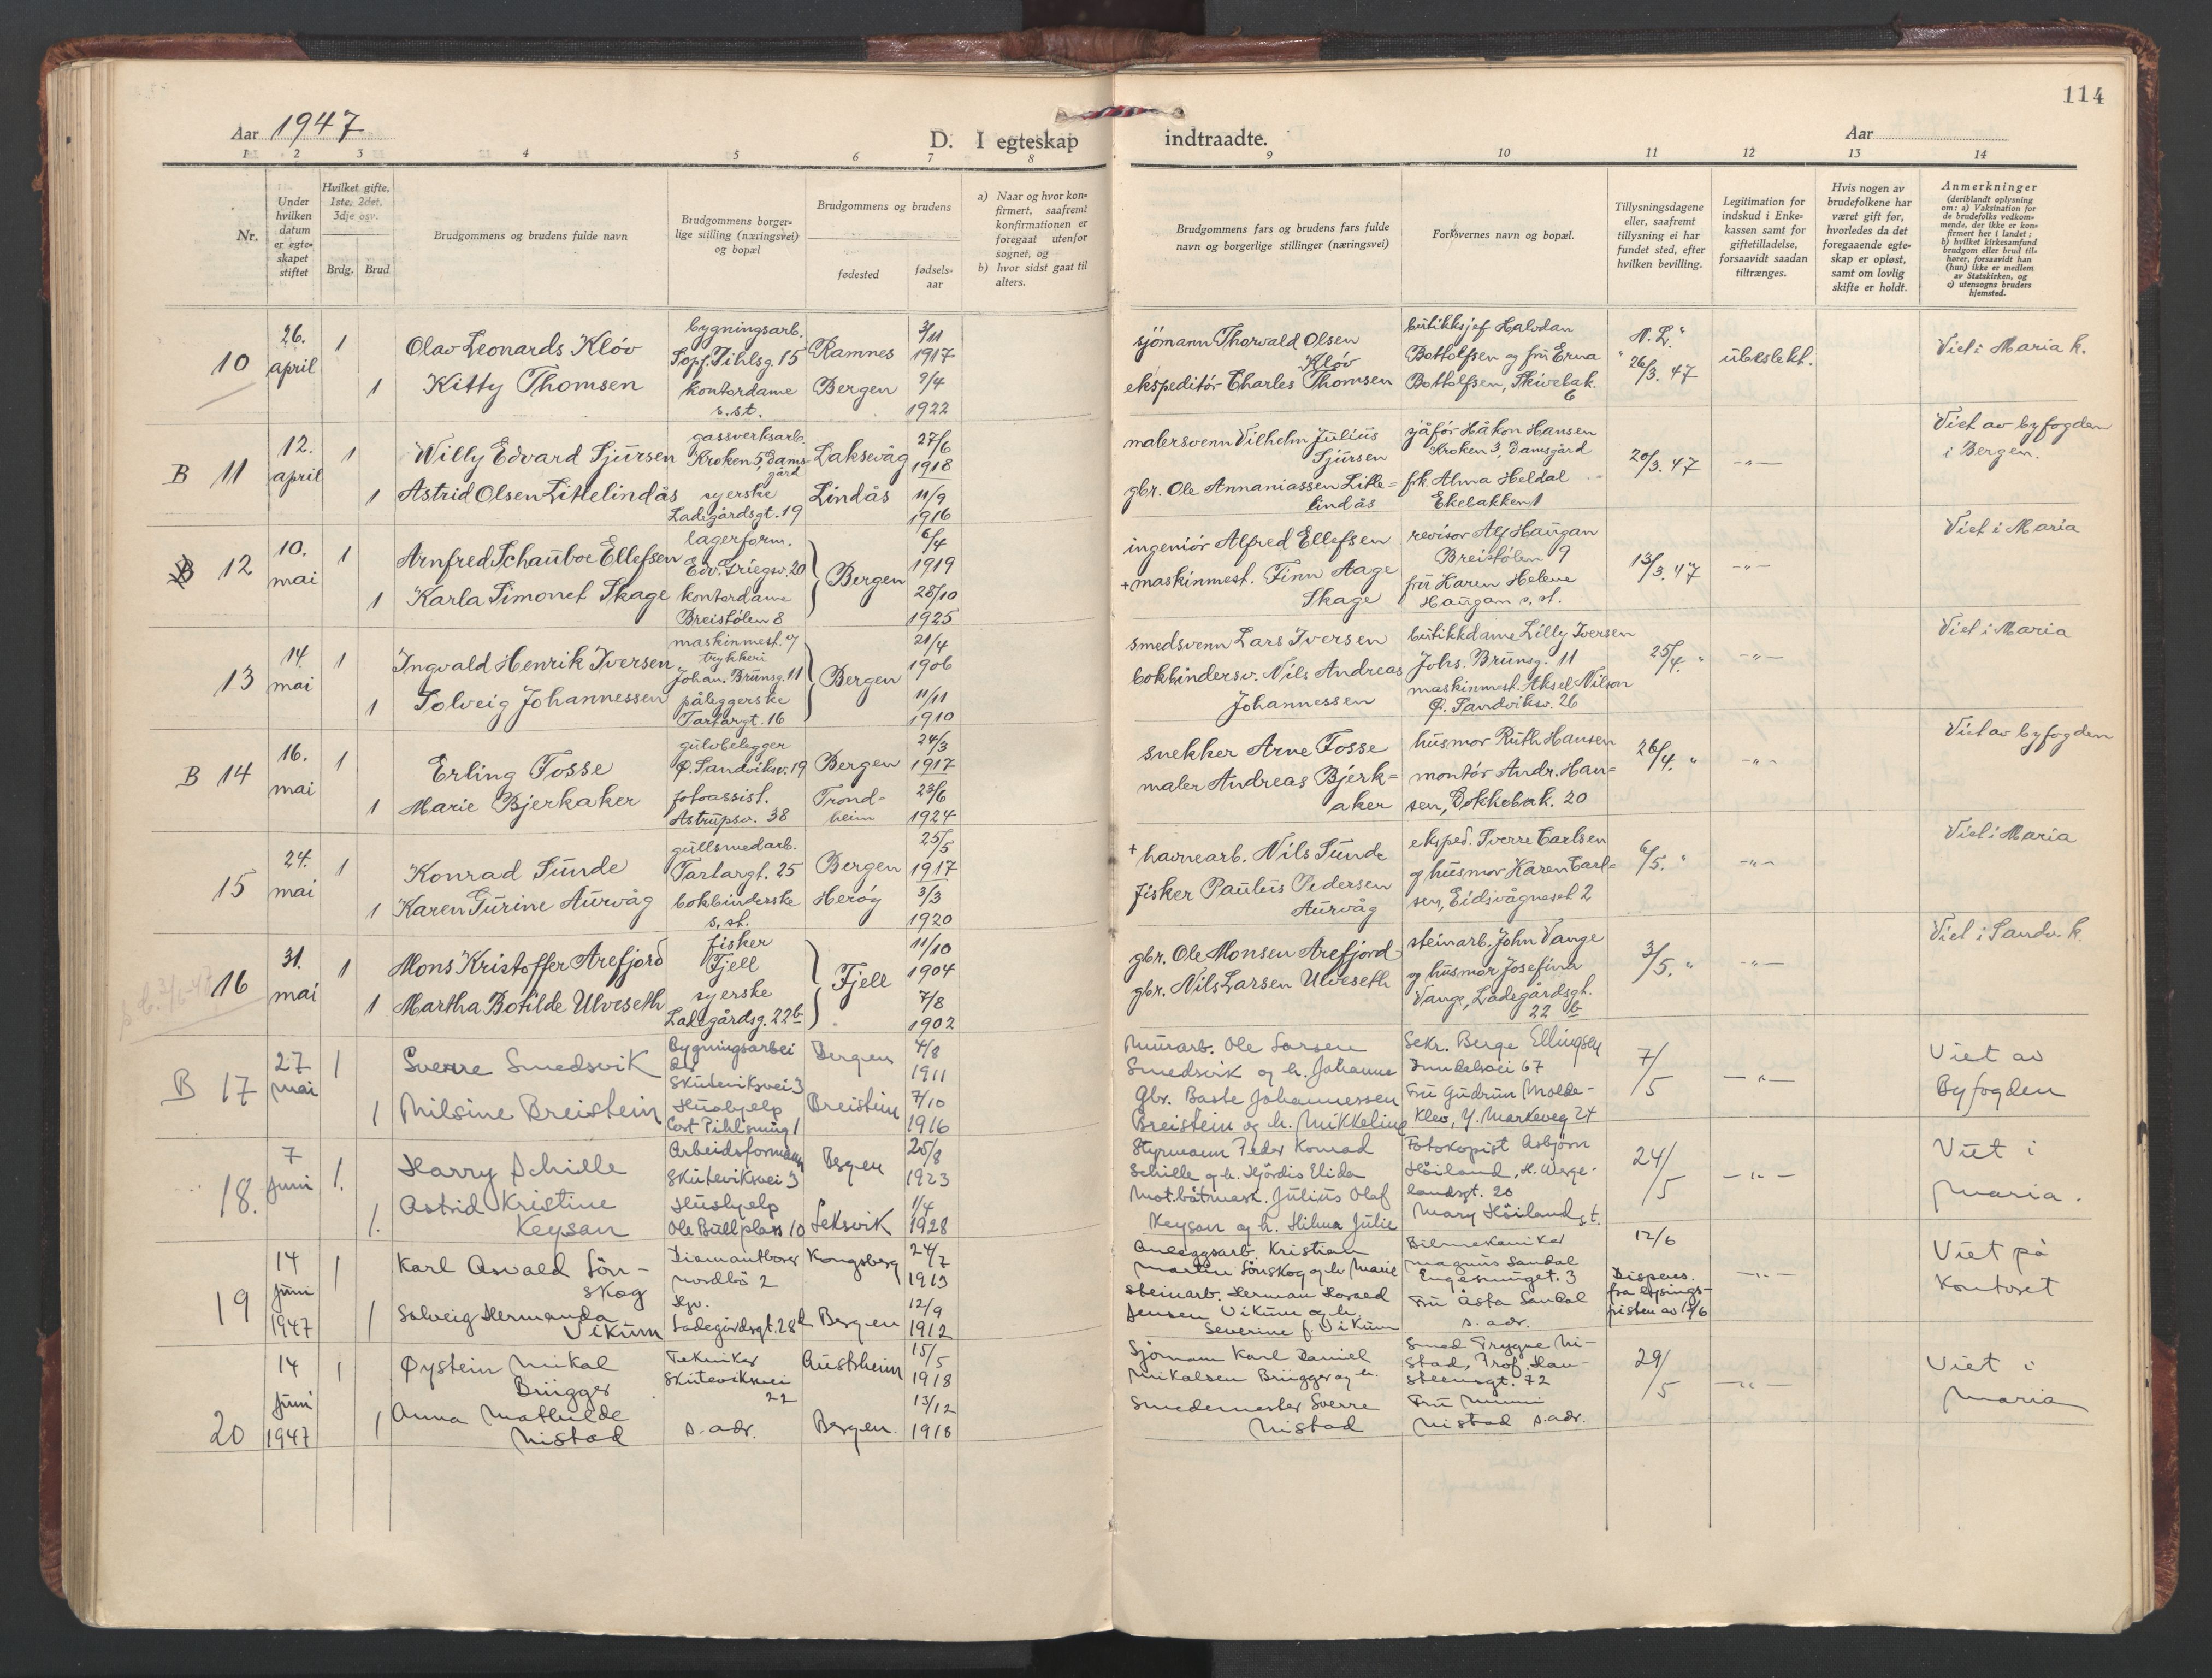 114
Aar 1947
D. I egteskap
indtraadte.
Aar
1 2 3 4 5 6 7 8
9 10 11 12 13 14
Nr.
Under hvilken datum er egteskapet stiftet
Hvilket gifte, 1ste, 2det, 3dje osv.
Brdg. Brud
Brudgommens og brudens fulde navn
Brudgommens borgerlige stilling (næringsvei) og bopæl
Brudgommens og brudens
fødested
fødselsaar
a) Naar og hvor konfirmert, saafremt konfirmationen er foregaat utenfor sognet, og
b) hvor sidst gaat til alters.
Brudgommens fars og brudens fars fulde navn og borgerlige stillinger (næringsvei)
Forlovernes navn og bopæl.
Tillysningsdagene eller, saafremt tillysning ei har fundet sted, efter hvilken bevilling.
Legitimation for indskud i Enkekassen samt for giftetilladelse, forsaavidt saadan tiltrænges.
Hvis nogen av brudefolkene har været gift før, hvorledes da det foregaaende egteskap er opløst, samt om lovlig skifte er holdt.
Anmerkninger
(deriblandt oplysning om: a) Vaksination for de brudefolks vedkommende, der ikke er konfirmert her i landet; b) hvilket kirkesamfund brudgom eller brud tilhører, forsaavidt han (hun) ikke er medlem av Statskirken, og c) utensogns bruders hjemsted.
10
26. april
1
Olav Leonards Kløv
bygningsarb.
Sopf. Pihlsg. 15
Ramnes
3/11 1917
1
Kitty Thomsen
kontordame
s.st.
Bergen
9/4 1922
sjömann Thorvald Olsen
Kløv
ekspeditör Charles Thomsen
butikksjef Halvdan
Bottolfsen og frü Erna
Bottolfsen, Skivebak.
6
N. L.
26/3. 47
übeslekt.
Viet i Maria k.
B 11
12. april
1
Willy Edvard Sjürsen
gassverksarb.
Kroken 5, Dams-
gård
Laksevåg
27/6 1918
1
Astrid Olsen Litlelindås
syerske
Ladegårdsgt. 19
Lindås
11/9 1916
malersvenn Vilhelm Julius
Sjürsen
gbr. Ole Annaniassen Litle=
lindås
sjåför Håkon Hansen
Kroken 3, Damsgård
frk. Alma Heldal
Ekebakken 1
20/3. 47
-"-
Viet av byfogden
i Bergen.
B 12
10. mai
1
Arnfred Schaüboe Ellefsen
lagerform.
Edv. Griegsv. 20
Bergen
6/4 1919
1
Karla Simonet Skage
kontordame
Breistölen 8
28/10 1925
ingeniör Alfred Ellefsen
+ maskinmest. Finn Aage
Skage
revisor Alf Haügan
Breistølen 9
frü Karen Helene
Haügan s. st.
13/3. 47
-"-
Viet i Maria
13
14. mai
1
Ingvald Henrik Iversen
maskinmest. v/
trykkeri
Johan. Brünsg. 11
Bergen
21/4 1906
1
Solveig Johannessen
påleggerske
Tartargt. 16
11/11 1910
smedsvenn Lars Iversen
bokbindersv. Nils Andreas
Johannessen
butikkdame Lilly Iversen
Johs. Brünsg. 11
maskinmest. Aksel Nilson
Ø. Sandviksv. 26
25/4. "
-"-
Viet i Maria
B 14
16. mai
1
Erling Fosse
gülvbelegger
Ø. Sandviksv. 19
Bergen
24/3 1917
1
Marie Bjerkaker
fotoassist.
Astrüpsv. 38
Trond-
heim
23/6 1924
snekker Arne Fosse
maler Andreas Bjerk=
aker
hüsmor Ruth Hansen
montör Andr. Han=
sen, Dokkebak. 20
26/4. "
-"-
Viet av byfogden
15
24. mai
1
Konrad Sünde
güllsmedarb.
Tartargt. 25
Bergen
25/5 1917
1
Karen Türine Aürvåg
bokbinderske
s. st.
Herøy
3/3 1920
+ havnearb. Nils Sünde
fisker Paulus Pedersen
Aürvåg
eksped. Sverre Carlsen
og hüsmor Karen Carl=
sen, Eidsvågneset 2
6/5. "
-"-
Viet i Maria
16
31. mai
1
Mons Kristoffer Arefjord
fisker
Fjell
Fjell
11/10 1904
1
Martha Botilde Ulveseth
syerske
Ladegårdsg. 22 b
7/8 1902
gbr. Ole Monsen Arefjord
gbr. Nils Larsen Ulveseth
steinarb. John Vange
og hüsmor Josefina
Vange, Ladegårdsgt.
22 b
3/5. "
-"-
Viet i Sandv. k.
B 17
27 mai
1
Sverre Smedsvik
Bygningsarbei
der
Skuteviksvei 3
Bergen
4/8 1911
1
Nilsine Breistein
Hüshjelp
Cort Pihlsmüg 1
Breistein
7/10 1916
Mürarb. Ole Larsen
Smedsvik og h. Johanne
Gbr. Baste Johannessen
Breistein og h. Mikkeline
Sekr. Berge Ellingsen
67
Frü Güdrün Molde-
Klev, Y. Markeveg 24
7/5
-"-
Viet av
Byfogden
18.
7 Juni
1.
Harry Schille
Arbeidsformann
Skuteviksvei 3
Bergen
25/8 1923
1.
Astrid Kristine
Keysan
Hüshjelp
Ole Bull plass 10
Leksvik
1/4 1928
Styrmann Peder Konrad
Schille og h. Hjördis Elida
Mot.båtmask. Julius Olaf
Keysan og h. Hilma Julie
Fotokopist Asbjörn
Höiland, H. Werge-
landsgt. 20
Mary Höiland s.t.
24/5
-"-
Viet i
Maria.
19
14 Juni 1947
1
Karl Asvald Sön-
skog
Diamantborer
Nordbö 2
Kongsberg
24/7 1913
1
Solveig Hermanda
Vikum
Hjv.
Ladegårdsgt. 28 d
Bergen
12/9 1912
Anleggsarb. Kristian
Martin Sönskog og h. Marie
Steinarb. Herman
Jensen Vikum og h.
Severine f. Vikum
Bilmekaniker
Magnus Sandal
Engesmüget. 3
Frü Åsta Sandal
s. adr.
12/6
Dispens.
fra lysnings-
fristen av 12/6
-"-
Viet på
Kontoret
20
14 Juni 1947
1
Øystein Mikal
Brügger
Tekniker
Skuteviksvei
22
Austrheim
15/5 1918
1
Anna Mathilde
Nistad
s. adr.
Bergen.
13/12 1918
Sjömann Karl Daniel
Mikalsen Brügger og h.
Smedemester Sverre
Nistad
Smed Trygve Ni-
stad, Prof. Han-
steensgt. 72
Frü Mimi
Nistad s. adr.
29/5
-"-
Viet i
Maria